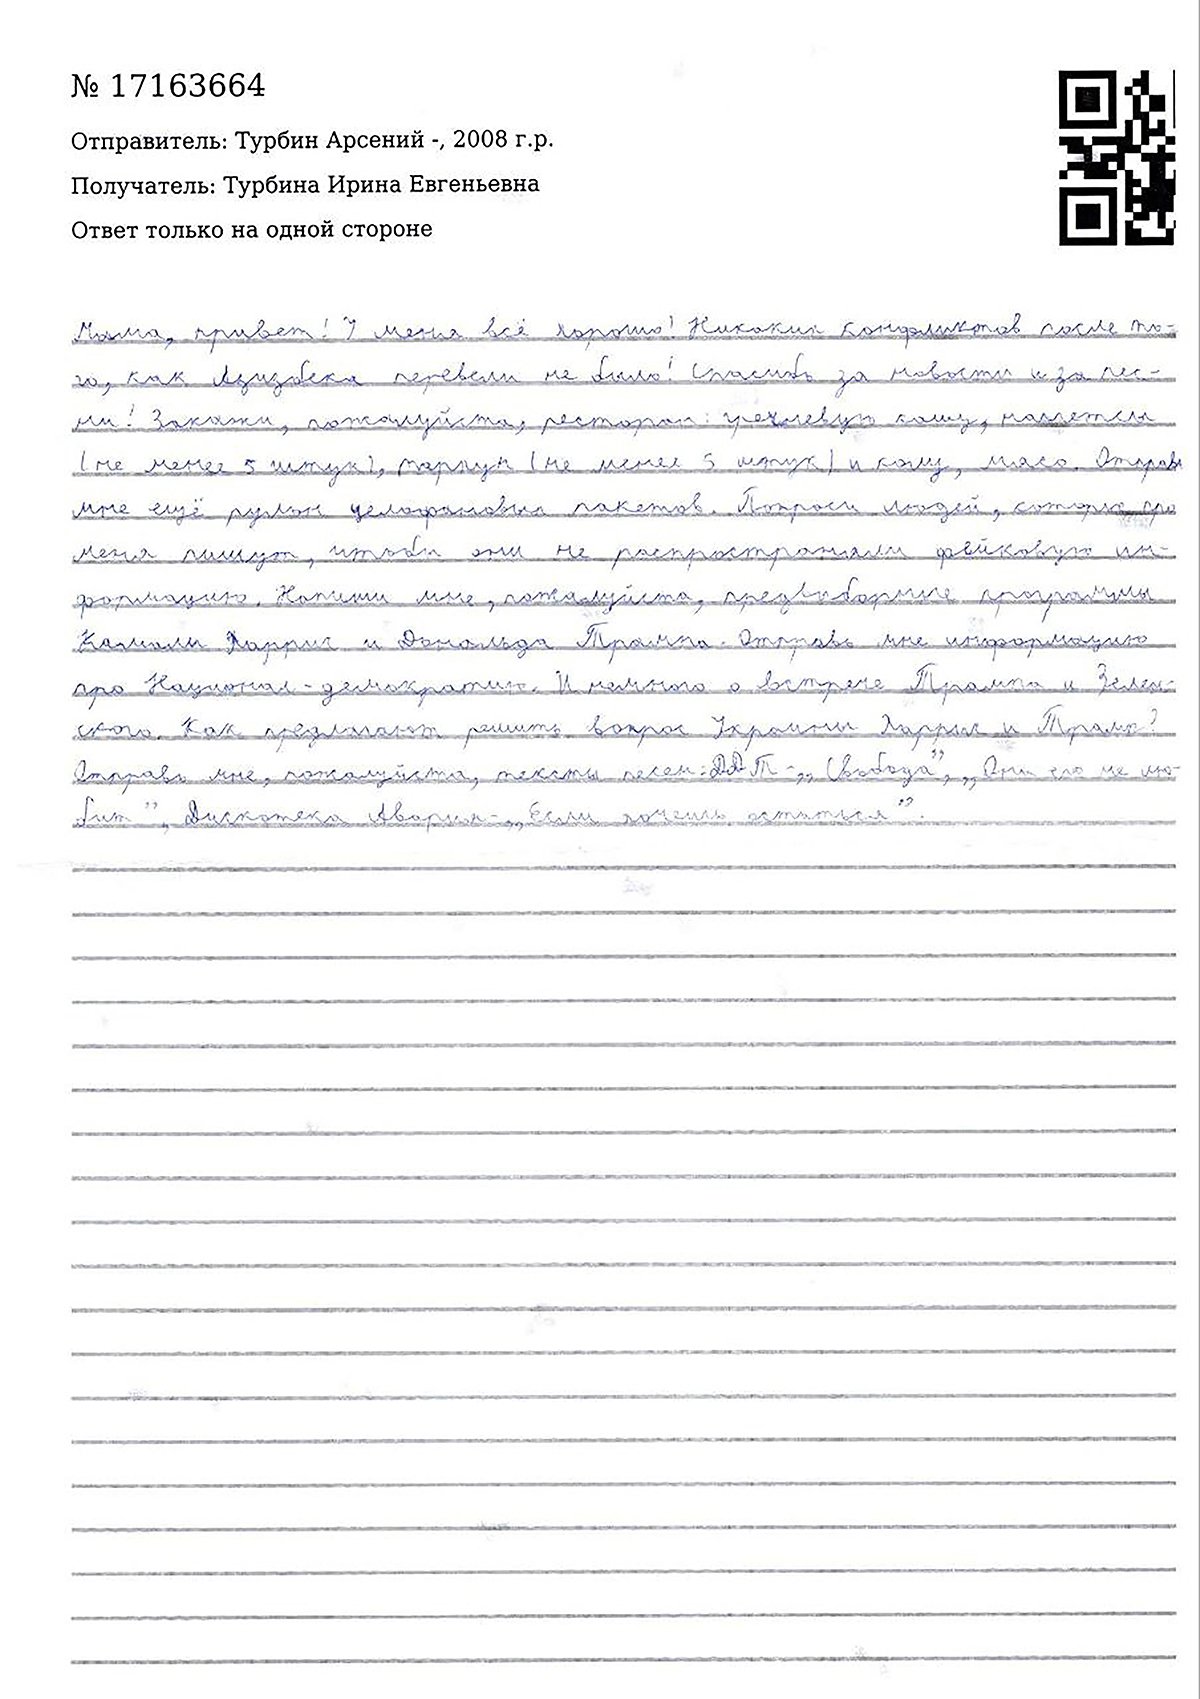 № 17163664
Отправитель: Турбин Арсений -, 2008 г.р.
Получатель: Турбина Ирина Евгеньевна
Ответ только на одной стороне
Мама, привет! У меня всё хорошо! Никаких конфликтов после то-
го, как Азизбека перевели не было! Спасибо за новости и за пес-
ни! Закажи, пожалуйста, ресторан: гречневую кашу, наггетсы
(не менее 5 штук), (не менее 5 штук) и мясо. Отправь
мне ещё рулон целофановых пакетов. Попроси людей, которые про
меня пишут, чтобы они не распространяли фейковую ин-
формацию. Напиши мне, пожалуйста, предвыборные программы
Камалы Харрис и Дональда Трампа. Отправь мне информацию
про Национал-демократию. И немного о встрече Трампа и Зелен-
ского. Как предлагают решить вопрос Украины Харрис и Трамп?
Отправь мне, пожалуйста, тексты песен: ДДТ - „Свобода”, „Они его не лю-
бит”, Дискотека Авария - „Если хочешь остаться”.